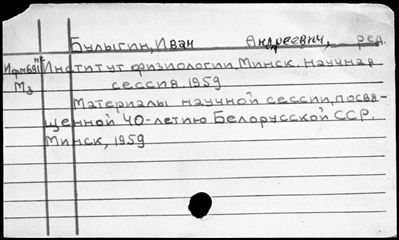 Булыгин, Иван Андреевич, ред.
Институт физиологии, Минск. Научная
М3 сессия. 1959
Материалы научной сессии, посвя-
щенной 40-летию Белорусской ССР.
Минск, 1959